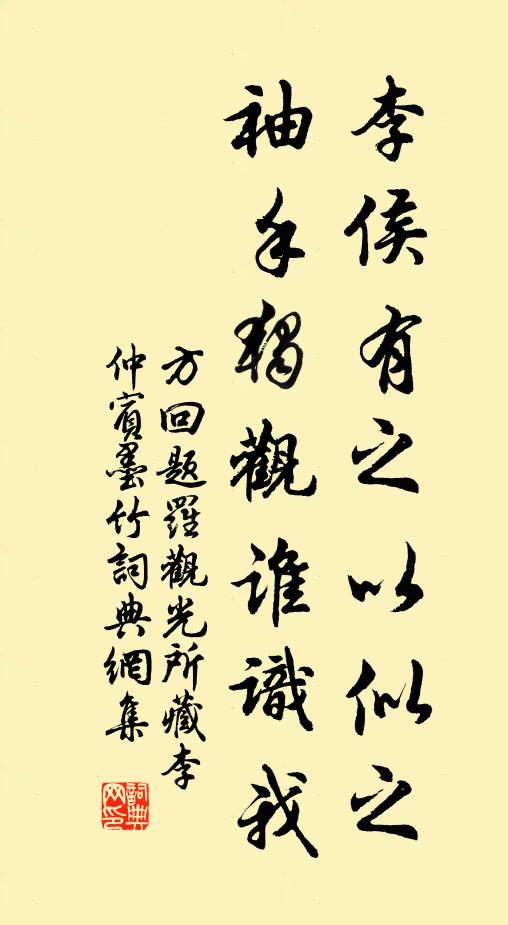 李侯有之以似之
袖手獨觀誰識我
方回題羅觀光所藏李
仲賓墨竹詞典網集
詞典網印